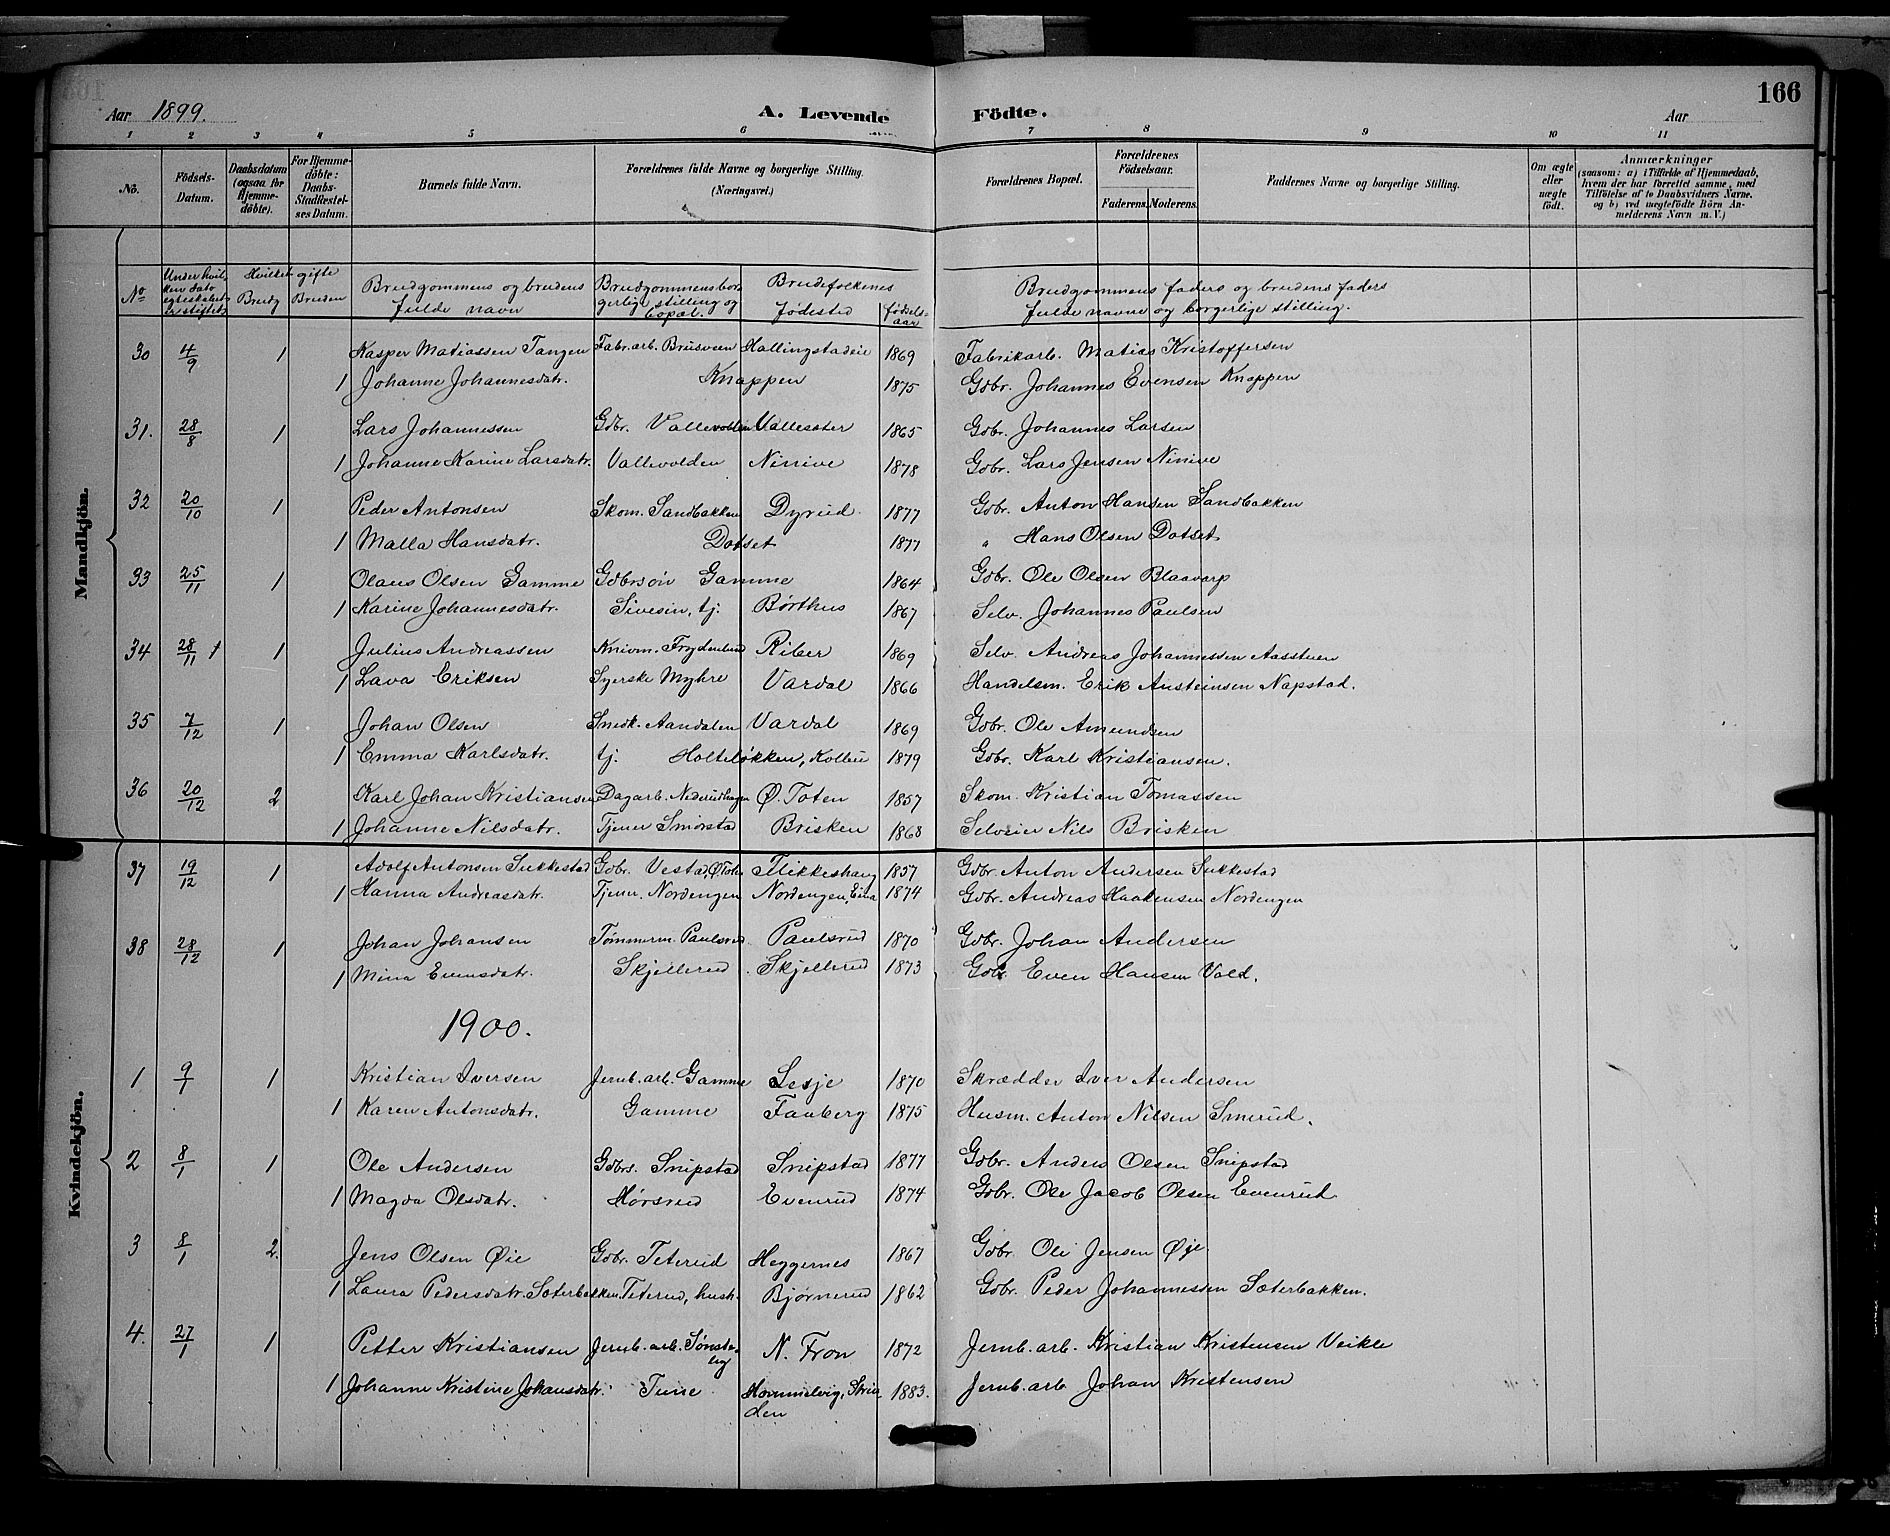 166
Aar 1899. A. Levende Födte. Aar
1 2 3 4 5 6 7 8 9 10 11
No. Födsels-Datum. Daabsdatum (ogsaa for Hjemme-döbte). For Hjemme-döbte: Daabs-Stadfæstel-ses Datum. Barnets fulde Navn. Forældrenes fulde Navne og borgerlige Stilling. (Næringsvei.) Forældrenes Bopæl. Forældrenes Födselsaar. Faderens. Moderens. Faddernes Navne og borgerlige Stilling. Om ægte eller uægte födt. Anmærkninger (saasom: a) i Tilfælde af Hjemmedaab, hvem der har forrettet samme, med Tilföielse af to Daabsvidners Navne, og b) ved uægtefödte Börn An-melderens Navn m. V.)
Mandkjön.
No Under hvil-ken dato egteskabet er stiftet Hvilket gifte Brudg Bruden Brudgommens og brudens fulde navn Brudgommens bor-gerlige stilling og bopæl. Brudefolkenes fødested fødsels-aar Brudgommens faders og brudens faders fulde navne og borgerlige stilling.
30 4/9 1 Kasper Matiassen Tangen Fabr. arb. Brusveen Hallingstadeie 1869 Fabrikarb. Matias Kristoffersen
1 Johanne Johannesdatr. Knappen 1875 Gdbr. Johannes Evensen Knappen
31. 28/8 1 Lars Johannessen Gdbr. Vallevolden Vallesæter 1865 Gdbr. Johannes Larsen
1 Johanne Karine Larsdatr. Vallevolden Ninive 1878 Gdbr. Lars Jensen Ninive
32 20/10 1 Peder Antonsen Skom. Sandbakken Dyrud 1877 Gdbr. Anton Hansen Sandbakken
1 Malla Hansdatr. Dotset 1877 " Hans Olsen Dotset
33 25/11 1 Olaus Olsen Gamme Gdbrsøn Gamme 1864 Gdbr. Ole Olsen Blaavarp
1 Karine Johannesdatr. Sivesin, tj. Børthus 1867 Selv. Johannes Paulsen
34 28/11 1 Julius Andreassen Knivm. Frydenlund Riber 1869 Selv. Andreas Johannessen Aasstuen
1 Lava Eriksen Syerske Myhre Vardal 1866 Handelsm. Erik Ansteinsen Napstad.
35 7/12 1 Johan Olsen Snedk. Aandalen Vardal 1869 Gdbr. Ole Amundsen
1 Emma Karlsdatr. tj. Holteløkken, Kolbu 1879 Gdbr. Karl Kristiansen.
36 20/12 2 Karl Johan Kristiansen Dagarb. Nederudhagen Ø. Toten 1857 Skom. Kristian Tomassen
1 Johanne Nilsdatr. Tjener Smørstad Brisken 1868 Selveier Nils Brisken
37 19/12 1 Adolf Antonsen Sukkestad Gdbr. Vestad, Ø Toten Flikkeshaug 1857 Gdbr. Anton Andersen Sukkestad
1 Hanna Andreasdatr. Tjener. Nordengen Nordengen, Eina 1874 Gdbr. Andreas Haakensen Nordengen
38 28/12 1 Johan Johansen Tømmerm. Paulsrud Paulsrud 1870 Gdbr. Johan Andersen
1 Mina Evensdatr. Skjellerud Skjellerud 1873 Gdbr Even Hansen Vold.
1900.
Kvindekjön.
1 9/1 1 Kristian Iversen Jernb. arb. Gamme Lesje 1870 Skrædder Iver Andersen
1 Karen Antonsdatr. Gamme Faaberg 1875 Husm. Anton Nilsen Smerud.
2 8/1 1 Ole Andersen Gdbrs. Snipstad Snipstad 1877 Gdbr. Anders Olsen Snipstad
1 Magda Olsdatr. Hørsrud Evenrud 1874 Gdbr. Ole Jacob Olsen Evenrud
3 8/1 2. Jens Olsen Øie Gdbr. Teterud Heggernes 1867 Gdbr. Ole Jensen Øje.
1 Laura Pedersdatr. Sæterbakken Teterud, hush. Bjørnerud 1862 Gdbr. Peder Johannessen Sæterbakken.
4. 27/1 1 Petter Kristiansen Jernb. arb. Sønste-by N. Fron 1872 Jernb. arb. Kristian Kristensen Veikle
1 Johanne Kristine Johansdatr. Tune Hommelvig, Strin-den 1883. Jernb. arb Johan Kristensen